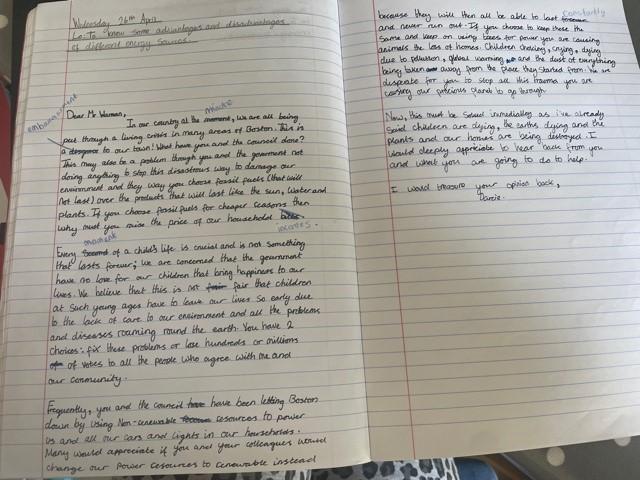 Wednesday 26th April
Lo: To know some advantages and disadvantages
of different energy sources.
Dear Mr Warman,
minute
In our country at the moment, we are all being
embarrassment
put through a living crisis in many areas of Boston. This is
a disgrace to our town! What have you and the council done?
This may also be a problem through you and the goverment not
doing anything to stop this disastrous way to damage our
environment and they way you choose fossil fuels (that will
not last) over the products that will last like the sun, water and
plants. If you choose fossil fuels for cheaper reasons then
why must you raise the price of our household bills.
incomes.
moment
Every Second of a child's life is crucial and is not something
that lasts forever; we are concerned that the government
have no love for our children that bring happiness to our
lives. We believe that this is not fair that children
at such young ages have to leave our lives so early due
to the lack of care to our environment and all the problems
and diseases roaming round the earth. You have 2
choices: fix these problems or lose hundreds or millions
of of votes to all the people who agree with me and
our community.
Frequently, you and the council have have been letting Boston
down by using Non-renewable resources to power
us and all our cars and lights in our households.
Many would appreciate if you and your colleagues would
change our power resources to renewable instead
constantly
because they will then all be able to last forever
and never run out. If you choose to keep these the
same and keep on using trees for power you are causing
animals the loss of homes. Children choking, crying, dying
due to pollution, global warming and the dust of everything
being taken away from the place they started from. We are
desperate for you to stop all this trauma you are
causing our precious planet to go through.
Now, this must be solved immediatley as i've already
said children are dying, the earths dying and the
plants and our homes are being destroyed. I
would deeply appriciate to hear back from you
and what you are going to do to help.
I would treasure your opinion back,
Darcie.